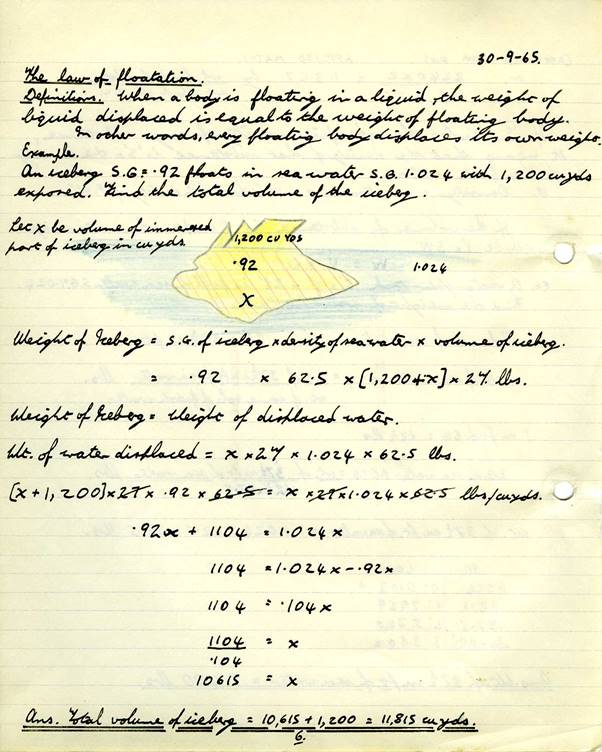 30-9-65.
The law of floatation.
Definitions. When a body is floating in a liquid, the weight of
liquid displaced is equal to the weight of floating body.
In other words, every floating body displaces its own weight.
Example.
An iceberg S.G = .92 floats in sea water S.G. 1.024 with 1,200 cu yds
exposed. Find the total volume of the iceberg.
Let X be volume of immersed
part of iceberg in cu yds.
1,200 CU YDS
.92
1.024
X
Weight of Iceberg = S.G. of iceberg x density of sea water x volume of iceberg.
= .92 x 62.5 x [1,200+x] x 27 lbs.
Weight of Iceberg = Weight of displaced water.
Wt. of water displaced = x x 27 x 1.024 x 62.5 lbs.
[x+1,200] x 27 x .92 x 62.5 = x x 27 x 1.024 x 62.5 lbs/cu yds.
.92x + 1104 = 1.024x
1104 = 1.024x - .92x
1104 = .104x
1104 = x
.104
10615 = x
Ans. Total volume of iceberg = 10,615 + 1,200 = 11,815 cu yds.
6.